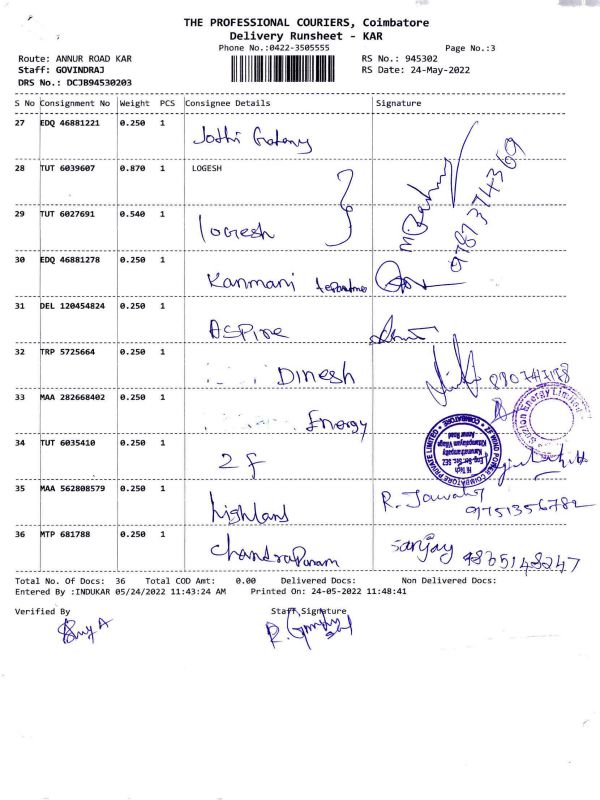 THE PROFESSIONAL COURIERS, Coimbatore
Delivery Runsheet - KAR
Phone No.:0422-3505555 Page No.:3
Route: ANNUR ROAD KAR RS No.: 945302
Staff: GOVINDRAJ RS Date: 24-May-2022
DRS No.: DCJB94530203
S No Consignment No Weight PCS Consignee Details Signature
27 EDQ 46881221 0.250 1 Jothi
28 TUT 6039607 0.870 1 LOGESH
29 TUT 6027691 0.540 1 logesh
9787374369
30 EDQ 46881278 0.250 1 Kanmani
31 DEL 120454824 0.250 1 Aspire
32 TRP 5725664 0.250 1 Dinesh
33 MAA 282668402 0.250 1 Energy
Suzlon Energy Limited
34 TUT 6035410 0.250 1 2f
COIMBATORE PRIVATE LIMITED
Hi Tech
Engg. Ser. Sec. SEZ
Annur Road
COIMBATORE
35 MAA 562808579 0.250 1 highland R. 9751356782
36 MTP 681788 0.250 1 chandra sanjay
Total No. Of Docs: 36 Total COD Amt: 0.00 Delivered Docs: Non Delivered Docs:
Entered By :INDUKAR 05/24/2022 11:43:24 AM Printed On: 24-05-2022 11:48:41
Verified By Staff Signature